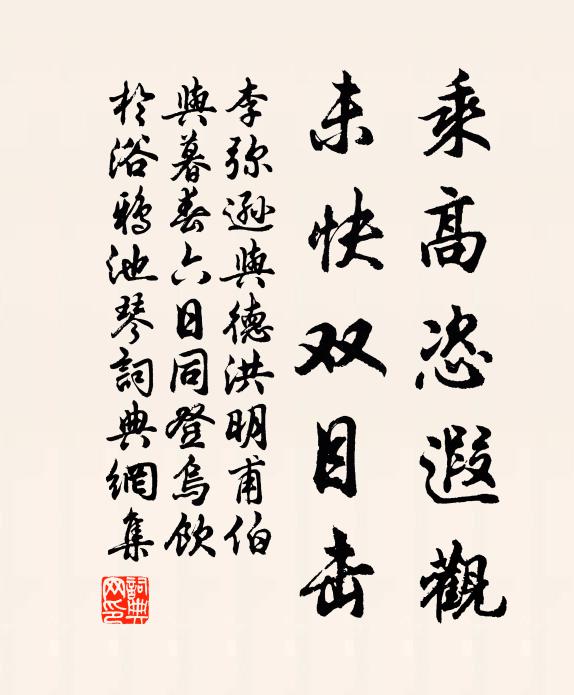 乘高恣遐觀
未快双目击
李弥逊與德洪明甫伯
與暮春六日同登烏飲
於浴鴉池琴詞典網集
詞典
网印